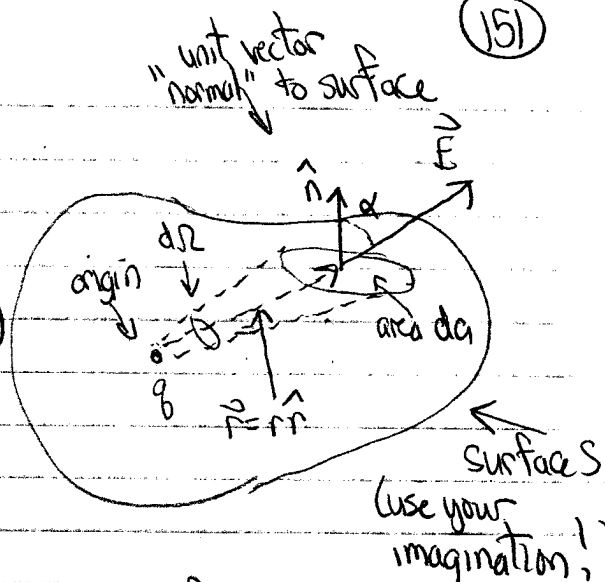 151
unit vector
"normal" to surface
E
n̂
α
dΩ
origin
area da
q
r⃗ = r r̂
surface S
(use your
imagination!)